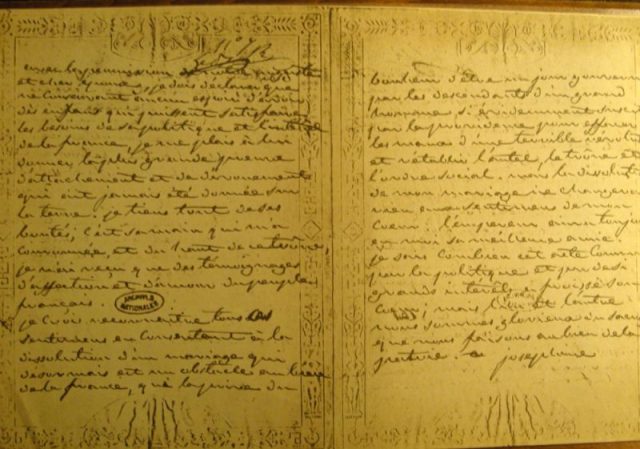 avec la permission de notre auguste
et cher époux, je dois déclarer que
ne conservant aucun espoir d'avoir
des enfans qui puissent satisfaire
les besoins de sa politique et l'intérêt
de la france, je me plais à lui
donner la plus grande preuve
d'attachement et de dévouement
qui ait jamais été donnée sur
la terre. je tiens tout de ses
bontés; c'est sa main qui m'a
couronnée, et du haut de ce trône,
je n'ai reçu que des témoignages
d'affection et d'amour du peuple
français.
ARCHIVES NATIONALES
je crois reconnaître tous ces
sentimens en consentant à la
dissolution d'un mariage qui
désormais est un obstacle au bien
de la france, qui la prive du
bonheur d'être un jour gouvernée
par les descendants d'un grand
homme si évidemment suscité
par la providence pour effacer
les maux d'une terrible révolution
et rétablir l'autel, le trône et
l'ordre social. mais la dissolution
de mon mariage ne changera
rien aux sentimens de mon
coeur: l'empereur aura toujours
en moi sa meilleure amie.
je sais combien cet acte commandé
par la politique et par de si
grands intérêts a froissé son
coeur; mais l'un et l'autre
nous sommes glorieux du sacrifice
que nous faisons au bien de la
patrie.
joséphine